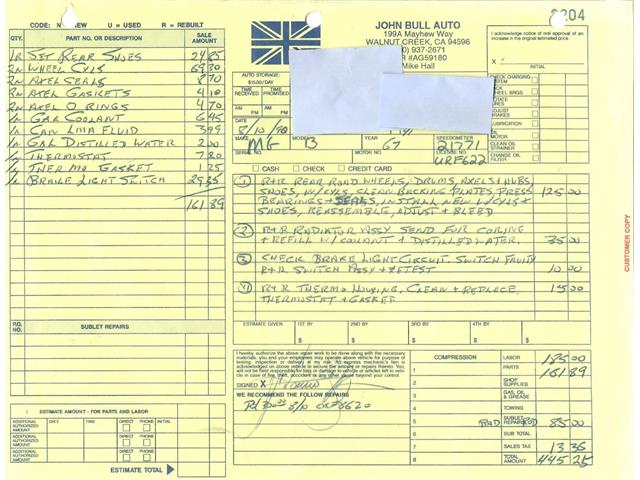 CODE: N = NEW U = USED R = REBUILT
QTY. PART NO. OR DESCRIPTION SALE AMOUNT
1R SET REAR SHOES 24 85
2N WHEEL CYLS 69 30
2N AXEL SEALS 8 70
2N AXEL GASKETS 4 10
2N AXEL O RINGS 4 70
1N GAL COOLANT 6 45
1N CAN LMA FLUID 3 99
1N GAL DISTILLED WATER 2 00
THERMOSTAT 7 20
THERMO GASKET 1 25
1N BRAKE LIGHT SWITCH 29 35
161 89
P.O. NO. SUBLET REPAIRS
ESTIMATE AMOUNT - FOR PARTS AND LABOR
ADDITIONAL AUTHORIZED AMOUNT DATE TIME DIRECT PHONE INITIAL
ADDITIONAL AUTHORIZED AMOUNT DIRECT PHONE
ADDITIONAL AUTHORIZED AMOUNT DIRECT PHONE
ESTIMATE TOTAL
JOHN BULL AUTO
199A Mayhew Way
WALNUT CREEK, CA 94596
0) 937-2671
R #AG59180
Mike Hall
204
I acknowledge notice of oral approval of an increase in the original estimated price.
X
INITIAL
AUTO STORAGE:
$15.00/DAY
TIME RECEIVED TIME PROMISED
AM PM AM PM
DATE
8/10/90
MAKE MODEL YEAR SPEEDOMETER
MG B 67 21771
SERIAL NO. MOTOR NO. LICENSE NO.
URF622
CHECK CHARGING SYSTEM
PACK WHEEL BRGS.
ROTATE TIRES
ADJUST BRAKES
LUBRICATION
OIL MOTOR
CLEAN OIL STRAINER
CHANGE OIL FILTER
CASH CHECK CREDIT CARD
1 R+R REAR ROAD WHEELS, DRUMS, AXELS & HUBS,
SHOES, W/CYLS, CLEAN BACKING PLATES PRESS 125 00
BEARINGS + SEALS, INSTALL NEW W/CYLS +
SHOES, REASSEMBLE, ADJUST & BLEED
2 R+R RADIATOR ASSY SEND FOR CORING
+ REFILL W/ COOLANT + DISTILLED WATER. 35 00
3 CHECK BRAKE LIGHT CIRCUIT SWITCH FAULTY
R+R SWITCH ASSY + RETEST 10 00
4 R+R THERMO HOUSING, CLEAN & REPLACE 15 00
THERMOSTAT + GASKET
CUSTOMER COPY
ESTIMATE GIVEN 1ST BY 2ND BY 3RD BY 4TH BY
$ $ $ $
I hereby authorize the above repair work to be done along with the necessary materials, you and your employees may operate above vehicle for purpose of testing, inspection or delivery at my risk. An express mechanic's lien is acknowledged on above vehicle to secure the amount of repairs thereto. You will not be held responsible for loss or damage to vehicle or articles left in vehicle in case of fire, theft, accident or any other cause beyond your control.
SIGNED X
WE RECOMMEND THE FOLLOW REPAIRS
COMPRESSION
1
2
3
4
5
6
7
8
LABOR 185 00
PARTS 161 89
SHOP SUPPLIES
GAS, OIL & GREASE
TOWING
SUBLET REPAIRS RAD ROD 85 00
SUB TOTAL
SALES TAX 13 36
TOTAL AMOUNT 445 25